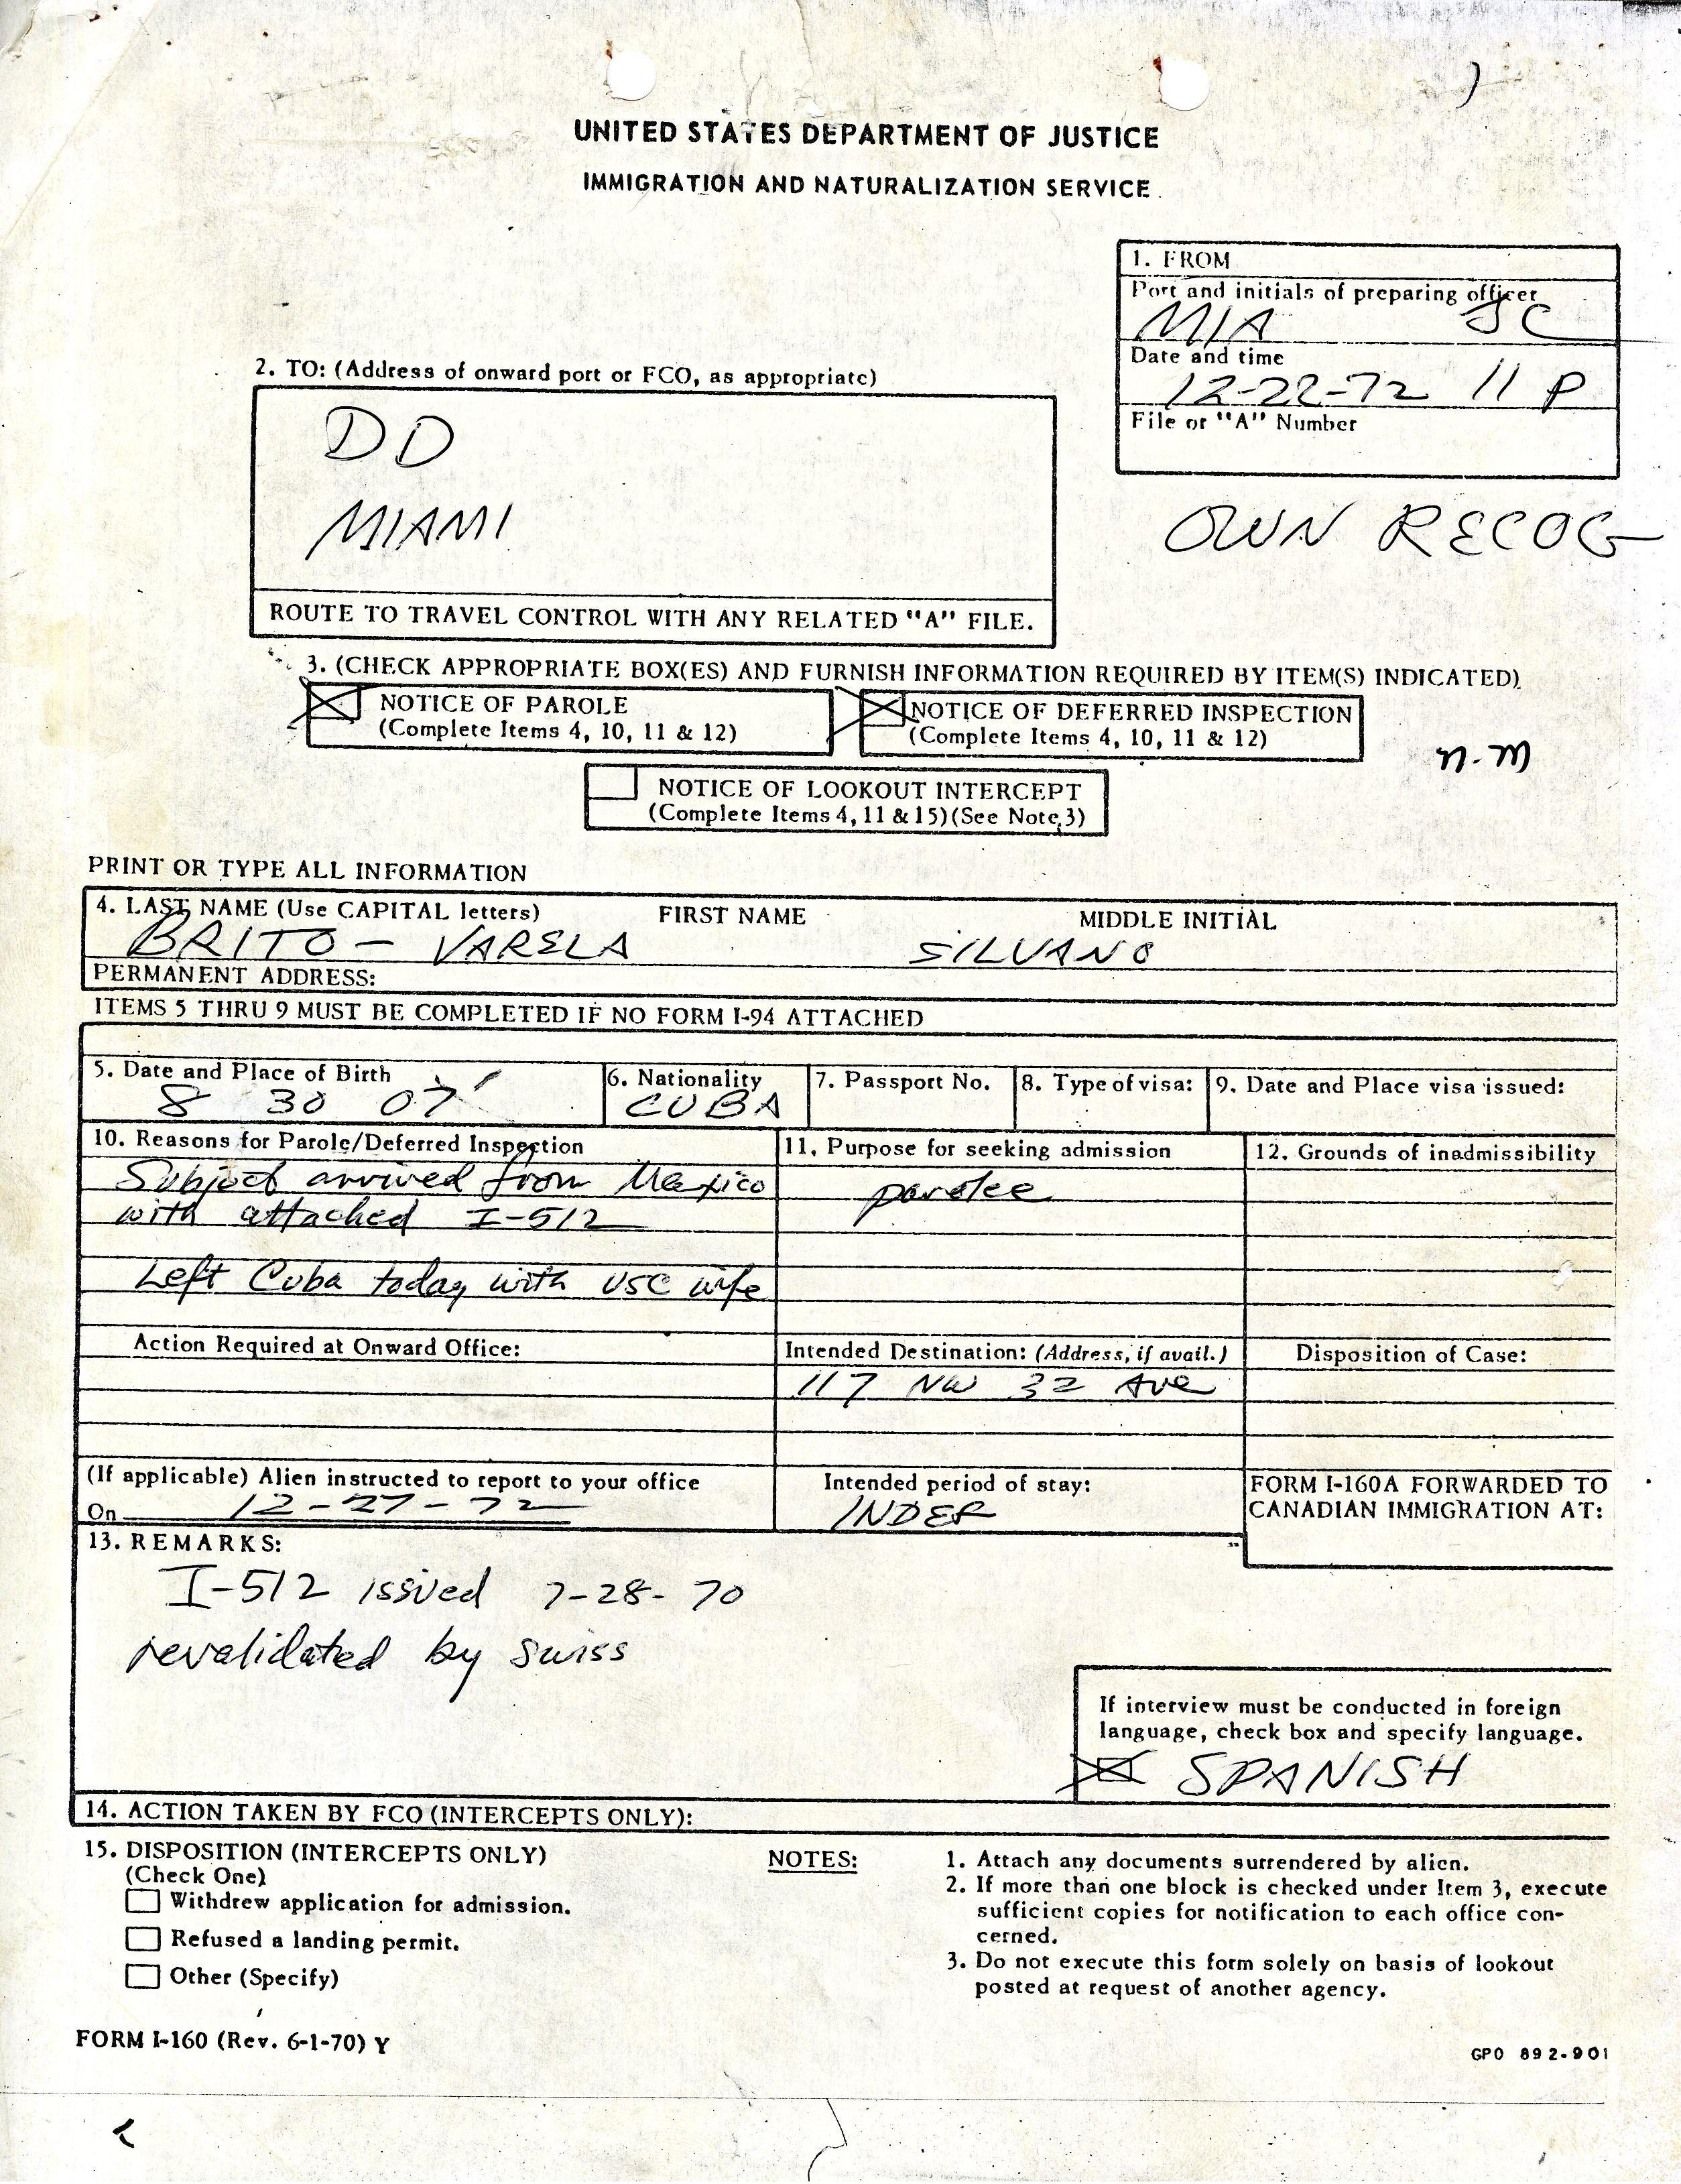 UNITED STATES DEPARTMENT OF JUSTICE
IMMIGRATION AND NATURALIZATION SERVICE
1. FROM
Port and initials of preparing officer
MIA JC
Date and time
12-22-72 11 P
File or "A" Number
2. TO: (Address of onward port or FCO, as appropriate)
DD
MIAMI
OWN RECOG
ROUTE TO TRAVEL CONTROL WITH ANY RELATED "A" FILE.
3. (CHECK APPROPRIATE BOX(ES) AND FURNISH INFORMATION REQUIRED BY ITEM(S) INDICATED)
NOTICE OF PAROLE
(Complete Items 4, 10, 11 & 12)
NOTICE OF DEFERRED INSPECTION
(Complete Items 4, 10, 11 & 12)
NOTICE OF LOOKOUT INTERCEPT
(Complete Items 4, 11 & 15) (See Note 3)
PRINT OR TYPE ALL INFORMATION
4. LAST NAME (Use CAPITAL letters) FIRST NAME MIDDLE INITIAL
BRITO - VARELA SILVANO
PERMANENT ADDRESS:
ITEMS 5 THRU 9 MUST BE COMPLETED IF NO FORM I-94 ATTACHED
5. Date and Place of Birth 6. Nationality 7. Passport No. 8. Type of visa: 9. Date and Place visa issued:
8 30 07 CUBA
10. Reasons for Parole/Deferred Inspection 11. Purpose for seeking admission 12. Grounds of inadmissibility
Subject arrived from Mexico parolee
with attached I-512
Left Cuba today with USC wife
Action Required at Onward Office: Intended Destination: (Address, if avail.) Disposition of Case:
117 NW 32 Ave
(If applicable) Alien instructed to report to your office
On 12-27-72
Intended period of stay:
INDEF
FORM I-160A FORWARDED TO
CANADIAN IMMIGRATION AT:
13. REMARKS:
I-512 issued 7-28-70
revalidated by Swiss
If interview must be conducted in foreign
language, check box and specify language.
SPANISH
14. ACTION TAKEN BY FCO (INTERCEPTS ONLY):
15. DISPOSITION (INTERCEPTS ONLY)
(Check One)
Withdrew application for admission.
Refused a landing permit.
Other (Specify)
NOTES:
1. Attach any documents surrendered by alien.
2. If more than one block is checked under Item 3, execute
sufficient copies for notification to each office con-
cerned.
3. Do not execute this form solely on basis of lookout
posted at request of another agency.
FORM I-160 (Rev. 6-1-70) Y
GPO 892-901